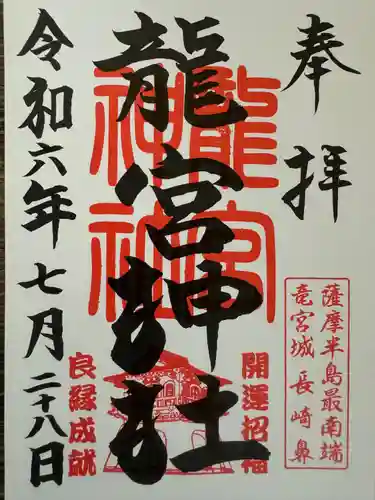 奉拝
薩摩半島最南端
竜宮城 長崎鼻
開運招福
龍宮神社
龍宮
神社
良縁成就
令和六年七月二十八日